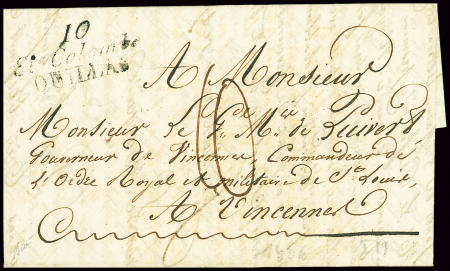 10
Ste Colombe
QUILLAN
A Monsieur
Monsieur le Gde Mis de Puivert
Gouverneur de Vincennes Commandeur de
L'Ordre Royal et militaire de St Louis,
A Vincennes